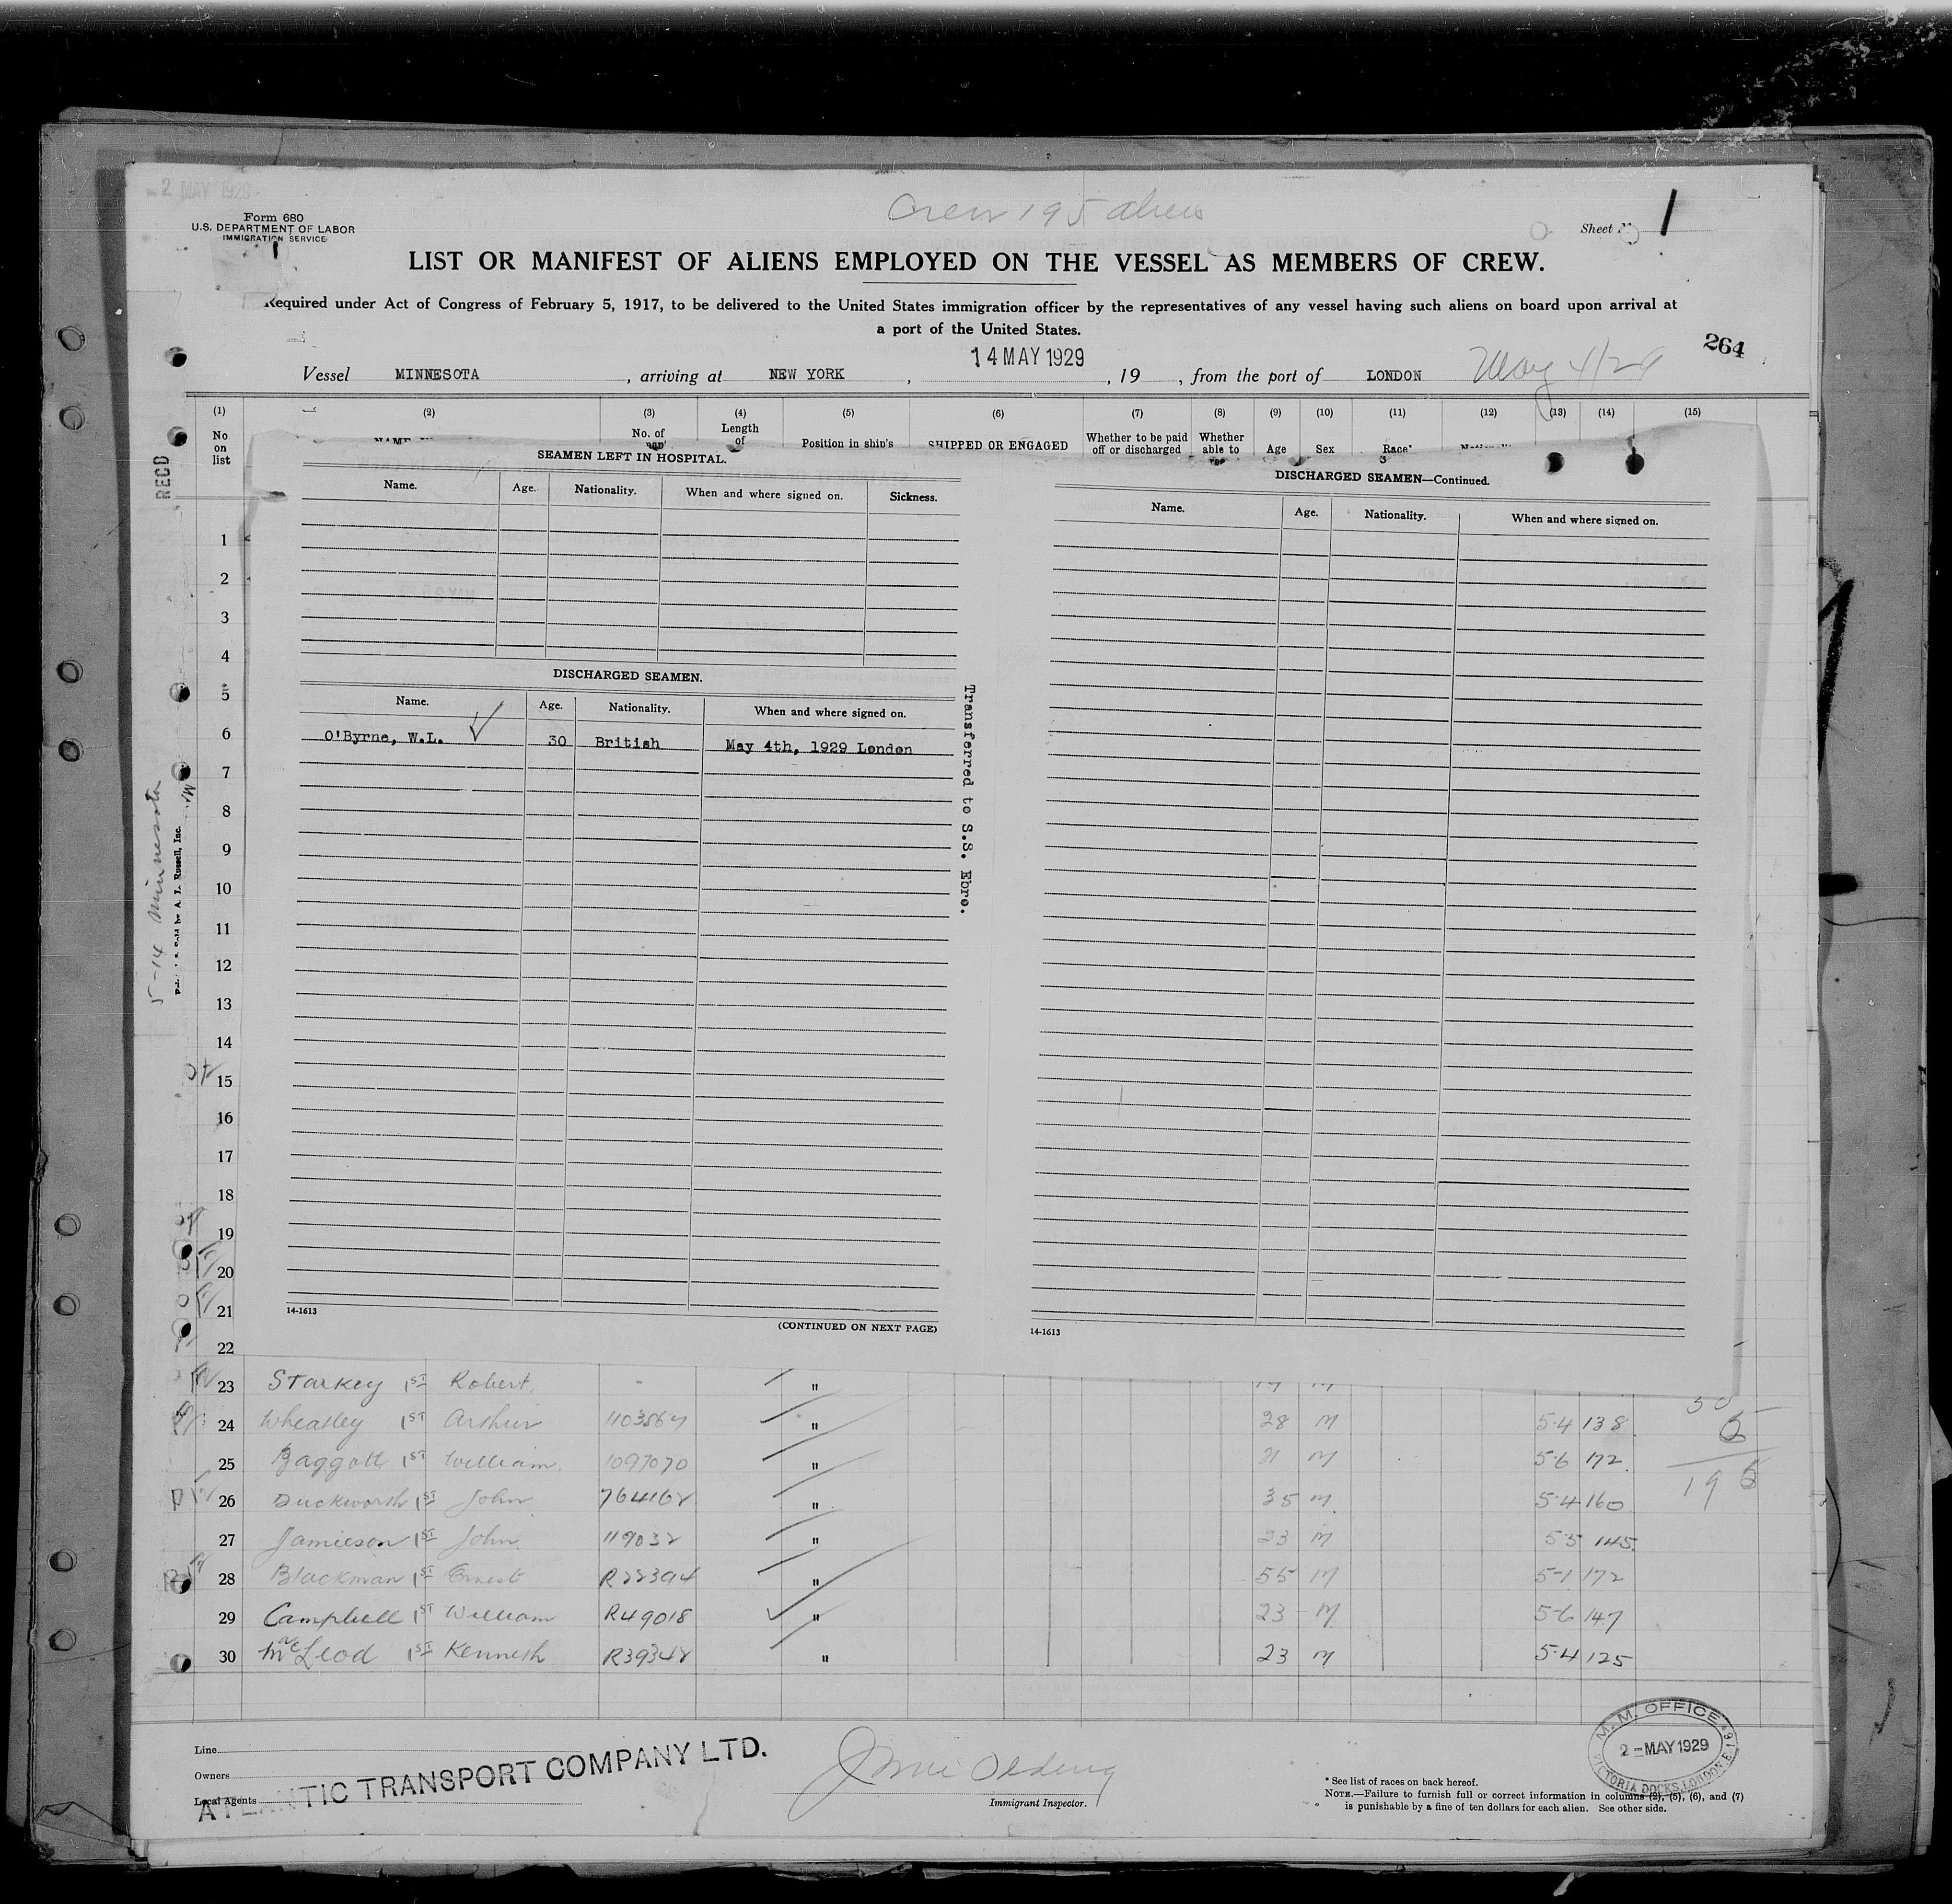 2 MAY 1929
Form 680
U.S. DEPARTMENT OF LABOR
IMMIGRATION SERVICE
1
Crew 195 aliens
Sheet 1
LIST OR MANIFEST OF ALIENS EMPLOYED ON THE VESSEL AS MEMBERS OF CREW.
Required under Act of Congress of February 5, 1917, to be delivered to the United States immigration officer by the representatives of any vessel having such aliens on board upon arrival at
a port of the United States.
264
14 MAY 1929
Vessel MINNESOTA, arriving at NEW YORK, , 19 , from the port of LONDON May 4/29
(1) (2) (3) (4) (5) (6) (7) (8) (9) (10) (11) (12) (13) (14) (15)
No on list
No. of
Length of
Position in ship's
SHIPPED OR ENGAGED
Whether to be paid off or discharged
Whether able to
Age
Sex
Race*
RECD
SEAMEN LEFT IN HOSPITAL.
Name. Age. Nationality. When and where signed on. Sickness.
DISCHARGED SEAMEN.
Name. Age. Nationality. When and where signed on.
O'Byrne, W.L. 30 British May 4th, 1929 London
Transferred to S.S. Ebro.
14-1613
(CONTINUED ON NEXT PAGE)
DISCHARGED SEAMEN—Continued.
Name. Age. Nationality. When and where signed on.
14-1613
5-14 Minnesota
Sold by A. L. Russell, Inc.
1
2
3
4
5
6
7
8
9
10
11
12
13
14
15
16
17
18
19
20
21
22
23 Starkey 1st Robert "
24 Wheatley 1st Arthur " 28 M 5-4 138
25 Baggott 1st William 1097070 " M 5-6 172
26 Duckworth 1st John 764162 " 35 M 5-4 160
27 Jamieson 1st John 119032 " 23 M 5-5 145
28 Blackman 1st Ernest R22394 " 55 M 5-1 172
29 Campbell 1st William R49018 " 23 M 5-6 147
30 McLeod 1st Kenneth R39342 " 23 M 5-4 125
Line
Owners
Local Agents
ATLANTIC TRANSPORT COMPANY LTD.
Immigrant Inspector.
M. M. OFFICE
2-MAY 1929
VICTORIA DOCKS, LONDON E.16
* See list of races on back hereof.
NOTE.—Failure to furnish full or correct information in columns (2), (5), (6), and (7)
is punishable by a fine of ten dollars for each alien. See other side.